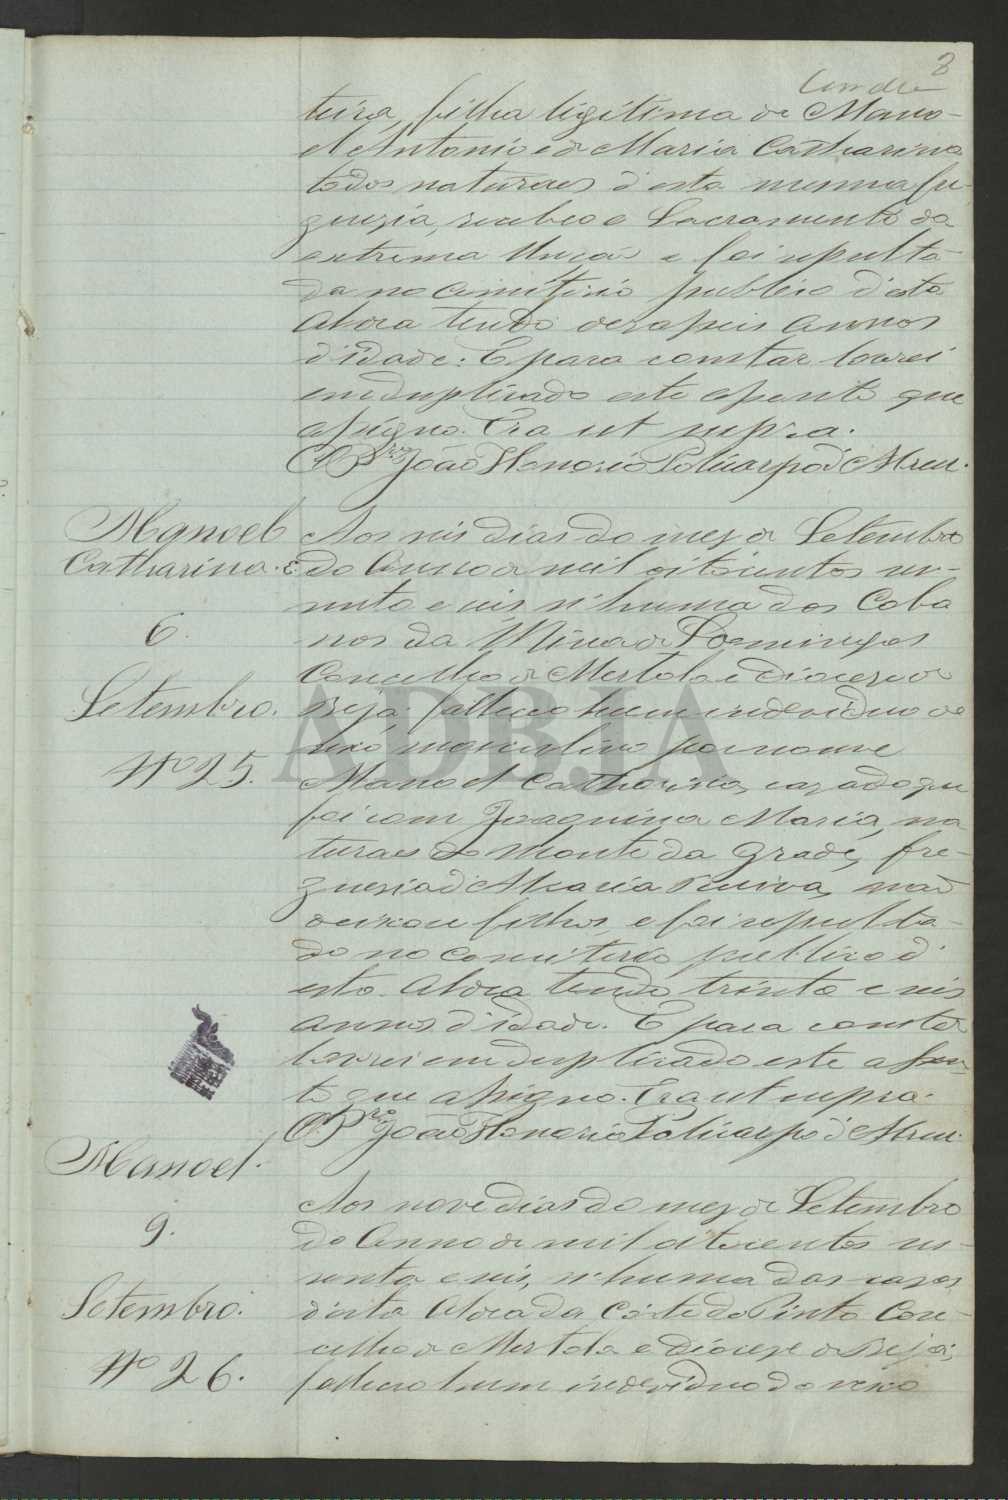 8
teira, filha legitima de Mano-
el Antonio e de Maria Catharina
todos naturaes d'esta mesma fre-
guezia, recebeo o Sacramento da
extrema Unção e foi sepulta-
da no Cimiterio publico d'esta
Aldea tendo dezaseis Annos
d'idade: E para constar lavrei
em duplicado este assento que
assigno. Era ut supra.
O P.re João Honorio Policarpo d'Abreu.
Manoel
Catharino.
6.
Setembro.
Nº 25.
Aos seis dias do mez de Setembro
do Anno de mil oitocentos ses-
senta e seis n'huma dos Caba
nos da Mina de S. Domingos
Concelho de Mertola e Diocese de
Beja: falleceo hum individuo do
sexo masculino por nome
Manoel Catharino, cazado que
foi com Joaquina Maria, na
turaes do Monte da Grade, fre-
guezia d'Alcaria Ruiva, não
deixou filhos, e foi sepulta-
do no Comiterio publico d'
esta Aldea tendo trinta e seis
annos d'idade. E para constar
lavrei em duplicado este assen-
to que assigno. Era ut supra.
O P.ro João Honorio Policarpo d'Abreu.
Manoel.
9.
Setembro.
Nº 26.
Aos nove dias do mez de Setembro
do Anno de mil oitocentos ses-
senta e seis, n'huma das cazas
d'esta Aldea da Córte do Pinto Con-
celho de Mertola e Diocese de Beja,
falleceo hum individuo do sexo
ADBJA